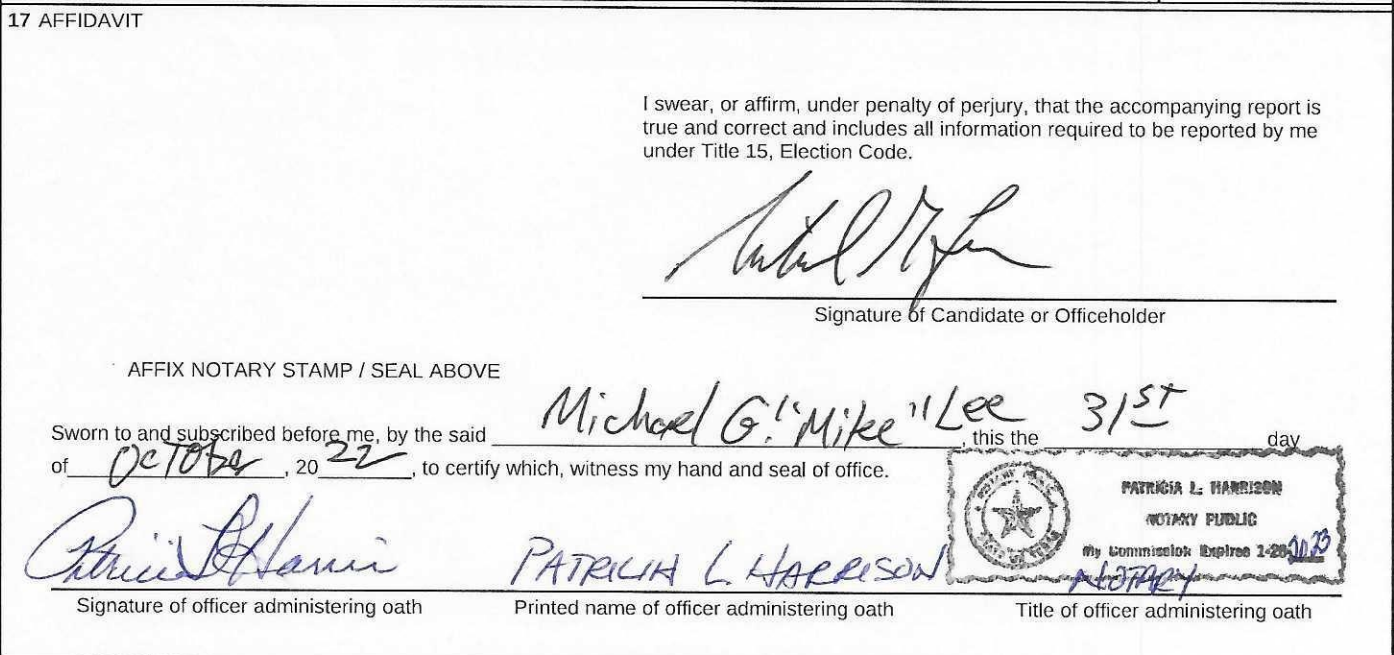 17 AFFIDAVIT
I swear, or affirm, under penalty of perjury, that the accompanying report is
true and correct and includes all information required to be reported by me
under Title 15, Election Code.
Signature of Candidate or Officeholder
AFFIX NOTARY STAMP / SEAL ABOVE
Sworn to and subscribed before me, by the said Michael G. "Mike" Lee, this the 31ST day
of October, 20 22, to certify which, witness my hand and seal of office.
PATRICIA L. HARRISON
NOTARY PUBLIC
My Commission Expires 1-28-2023
Patricia L Harrison PATRICIA L HARRISON NOTARY
Signature of officer administering oath Printed name of officer administering oath Title of officer administering oath